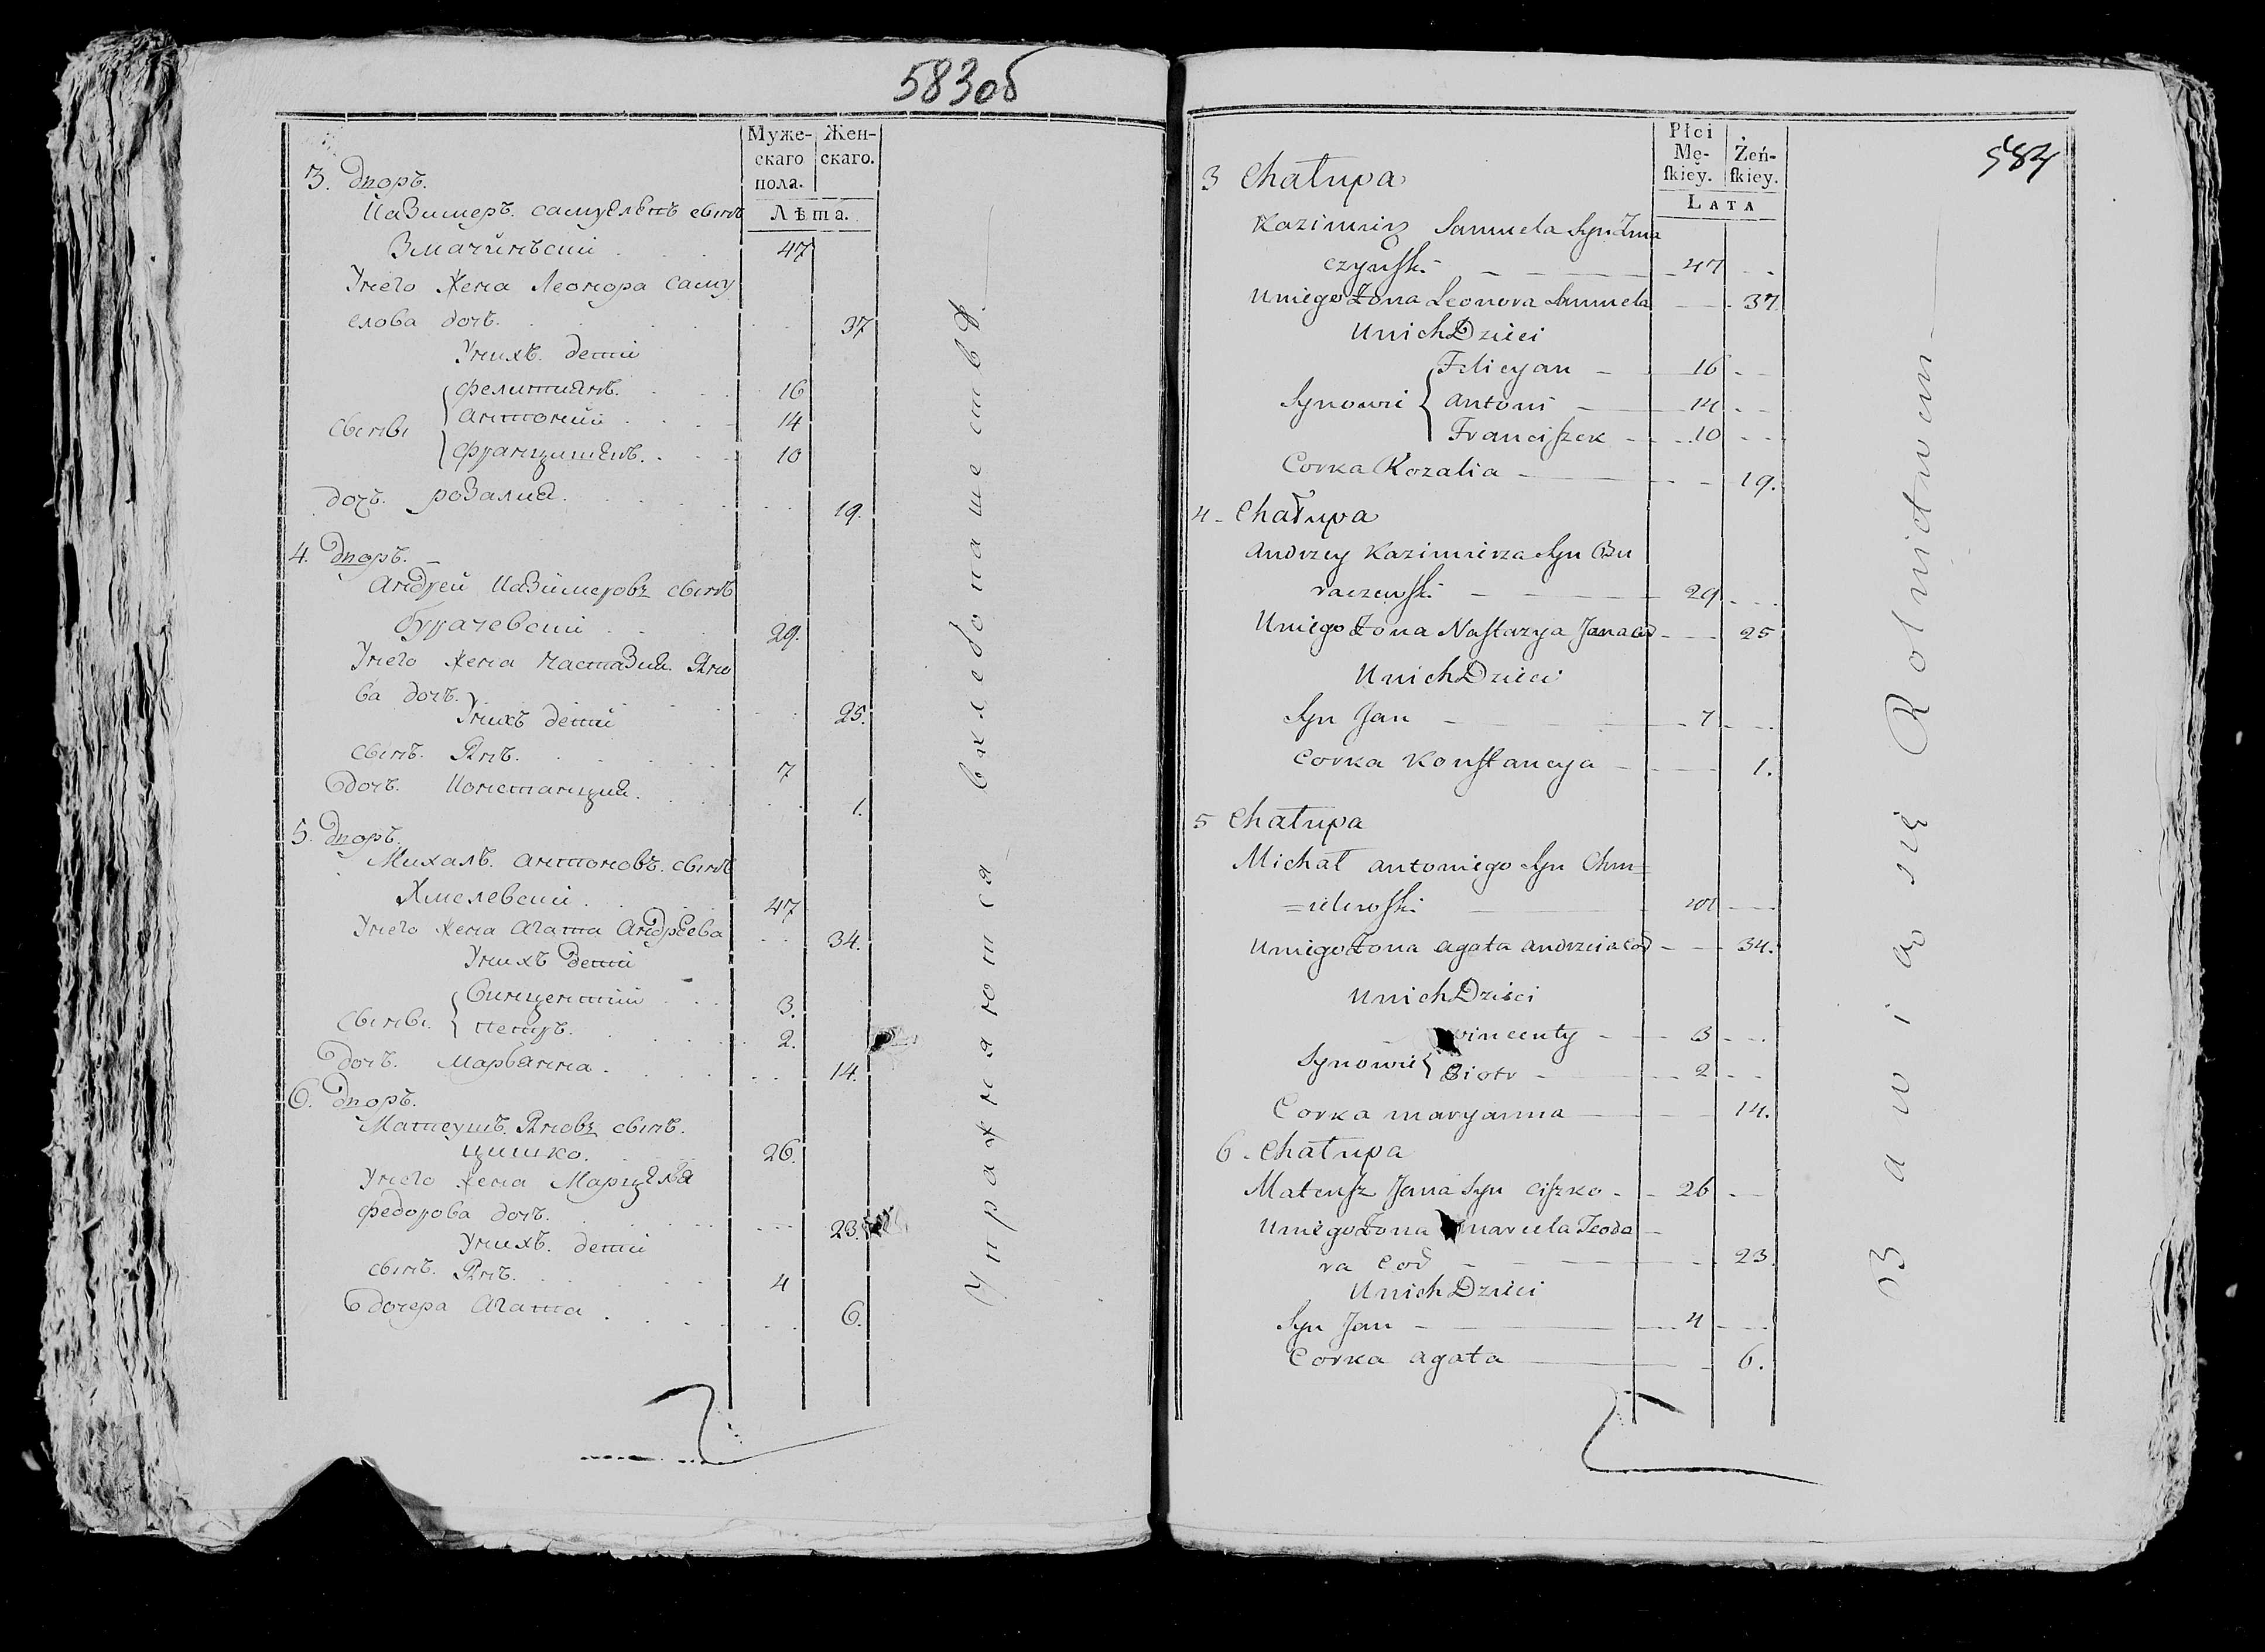 583об
Муже- Жен-
скаго скаго.
пола.
Лѣта.
3. дворъ.
Казимеръ. самуелевъ сынъ
Змачинскии 47
Унего жена Леонора саму
елова дочъ. 37
Унихъ. дети
фелитиянъ. 16
сыны антонии 14
францишекъ. 10
дочъ. розалия. 19.
4. дворъ.
андреи Казимеровъ сынъ
бурачевскии 29.
Унего жена настазия Яно
ва дочъ. 25.
Унихъ дети
сынъ. Янъ. 7
дочъ. Констанция. 1.
5. дворъ.
Михалъ. антоновъ. сынъ
Хмелевскии 47
Унего жена агата андреева 34.
Унихъ дети
Винцентии 3.
сыны. петръ. 2.
дочъ. марьянна. 14.
6. дворъ.
Матеушъ. Яновъ сынъ.
цишко. 26.
Унего жена Марцеля
федорова дочъ. 23.
Унихъ. дети
сынъ. Янъ. 4
дочера агата 6.
Упражняются вхлебопашестве.
584
Płci
Mę- Żeń-
skiey. skiey.
LATA
3 Chałupa
Kazimierz Samuela Syn Zma
czyński 47
Uniego Żona Leonora Samuela 37.
Unich Dzieci
Felicyan 16
Synowie Antoni 14
Franciszek 10
Corka Rozalia 19.
4 Chałupa
Andrzey Kazimierza Syn Bu
raczewski 29
Uniego Żona Nastazya Jana Cod 25
Unich Dzieci
Syn Jan 7
Corka Konstancya 1.
5 Chałupa
Michał Antoniego Syn Chm=
=ielewski 47
Uniego Żona Agata Andrzeia Cod 34.
Unich Dzieci
Wincenty 3
Synowie Piotr 2
Corka Maryanna 14.
6 Chałupa
Mateusz Jana Syn Ciszko 26
Uniego Żona Marcela Teodo
ra Cod 23.
Unich Dzieci
Syn Jan 4
Corka Agata 6.
Bawią się Rolnictwem